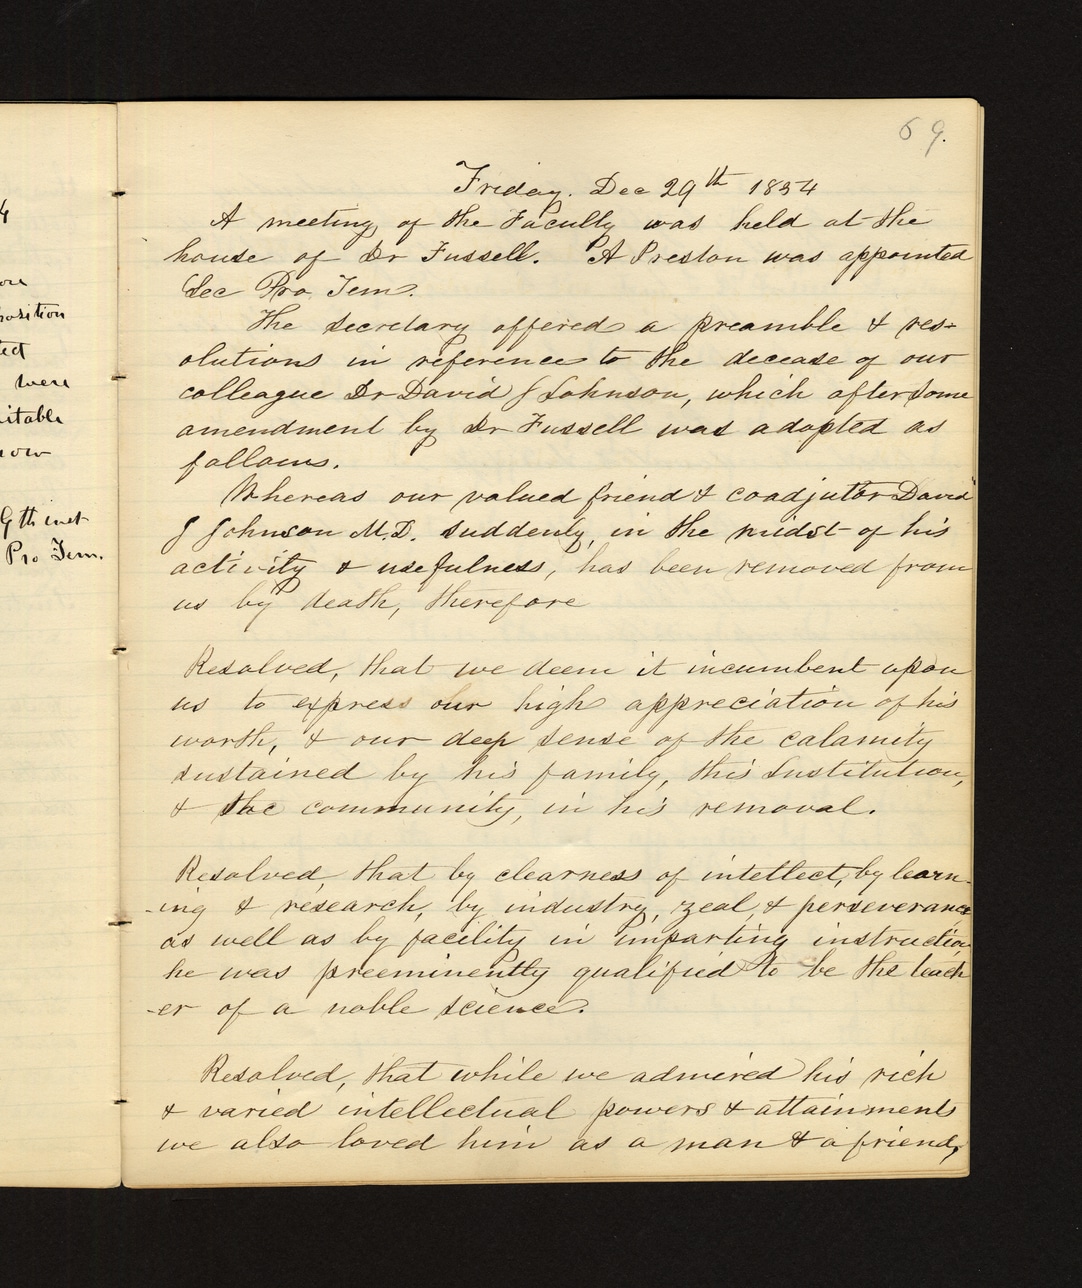 4
position
were
itable
9th inst
Pro Tem.
69.
Friday. Dec 29th 1854
A meeting of the Faculty was held at the
house of Dr Fussell. A Preston was appointed
Sec Pro Tem.
The Secretary offered a preamble & res=
olutions in reference to the decease of our
colleague Dr David J Johnson, which after some
amendment by Dr Fussell was adopted as
follows.
Whereas our valued friend & coadjutor David
J Johnson M.D. suddenly, in the midst of his
activity & usefulness, has been removed from
us by death, therefore
Resolved, that we deem it incumbent upon
us to express our high appreciation of his
worth, & our deep sense of the calamity
sustained by his family, this Institution,
& the community, in his removal.
Resolved, that by clearness of intellect, by learn-
-ing & research, by industry, zeal, & perseverance
as well as by facility in imparting instruction
he was preeminently qualified to be the teach
-er of a noble science.
Resolved, that while we admired his rich
& varied intellectual powers & attainments
we also loved him as a man & a friend,